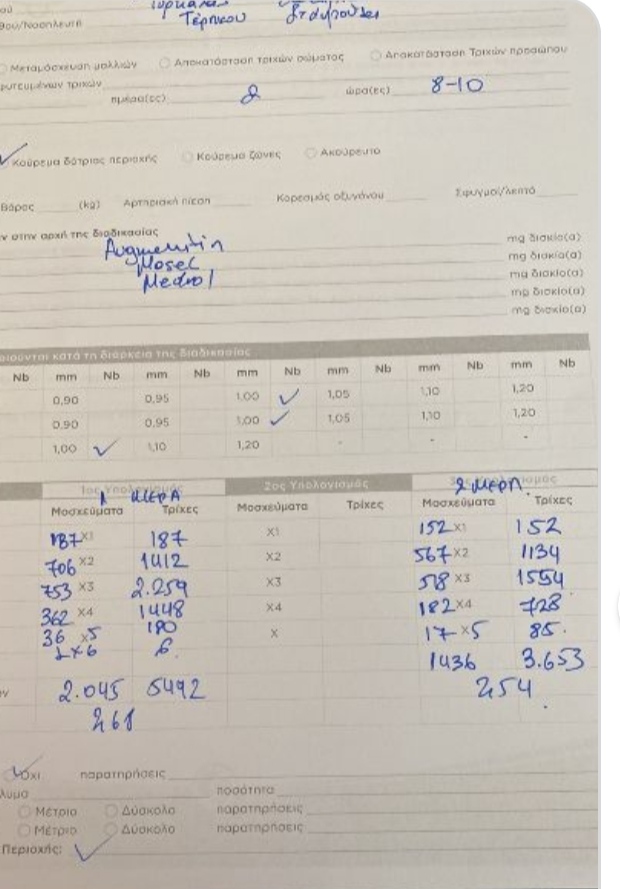 ού
Τέρπκου Σταμούλει
θού/Νοσηλευτή
Μεταμόσχευση μαλλιών Αποκατάσταση τριχών σώματος Αποκατάσταση Τριχών προσώπου
φυτευμένων τριχών
ημέρα(ες) 2 ώρα(ες) 8-10
Κούρεμα δότριας περιοχής Κούρεμα ζώνες Ακούρευτο
Βάρος (kg) Αρτηριακή πίεση Κορεσμός οξυγόνου Σφυγμοί/λεπτό
ν στην αρχή της διαδικασίας
Augmentin mg δισκίο(α)
Mosel mg δισκίο(α)
Medrol mg δισκίο(α)
mg δισκίο(α)
mg δισκίο(α)
ποιούνται κατά τη διάρκεια της διαδικασίας
Nb mm Nb mm Nb mm Nb mm Nb mm Nb mm Nb
0,90 0,95 1,00 ✓ 1,05 1,10 1,20
0,90 0,95 1,00 ✓ 1,05 1,10 1,20
1,00 ✓ 1,10 1,20 - - -
1ος Υπολογισμός 2ος Υπολογισμός
1 ΜΕΡΑ 2 ΜΕΡΑ
Μοσχεύματα Τρίχες Μοσχεύματα Τρίχες Μοσχεύματα Τρίχες
187 x1 187 X1 152 x1 152
706 x2 1412 X2 567 x2 1134
753 x3 2.259 X3 518 x3 1554
362 x4 1448 X4 182 x4 728
36 x5 180 X 17 x5 85.
1 x 6 6. 1436 3.653
2.045 5492 254
268
Όχι παρατηρήσεις
λυμα ποσότητα
Μέτριο Δύσκολο παρατηρήσεις
Μέτριο Δύσκολο παρατηρήσεις
Περιοχής: ✓